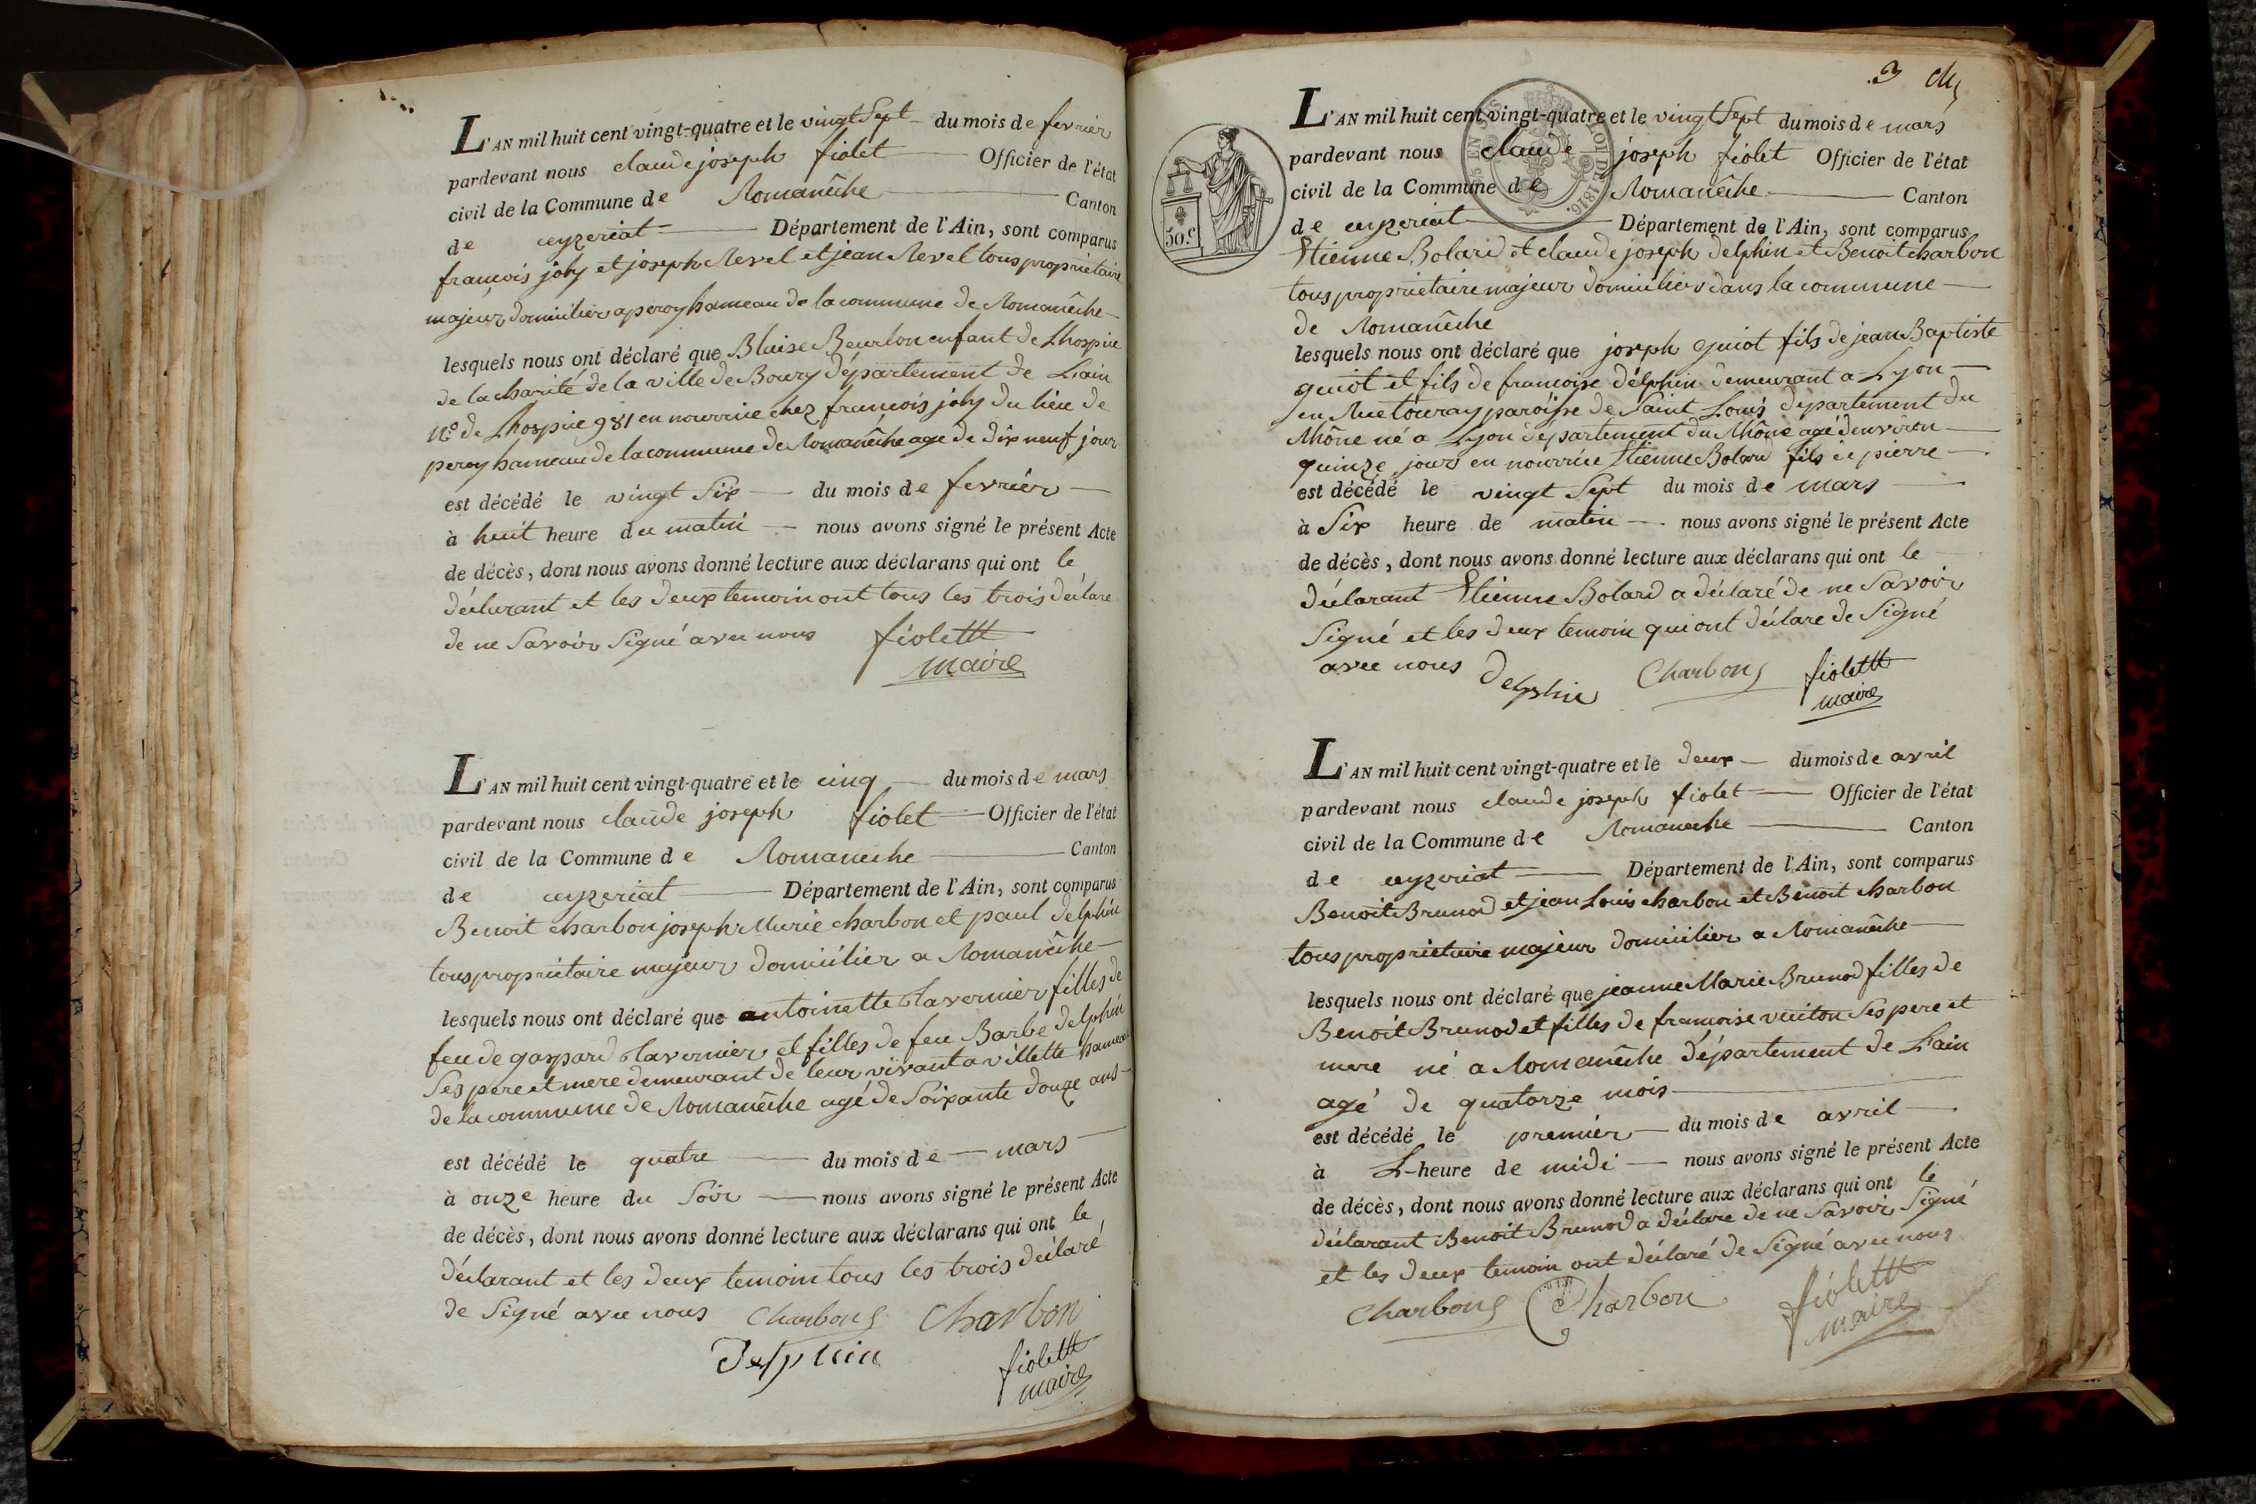 L'AN mil huit cent vingt-quatre et le vingt Sept du mois de fevrier
pardevant nous claude joseph fiolet Officier de l'état
civil de la Commune de Romanêche Canton
de ceyzeriat Département de l'Ain, sont comparus
francois joly et joseph Revel et jean Revel tous proprietaire
majeur domicilier a peroy hameau de la commune de Romanêche
lesquels nous ont déclaré que Blaise Beurlon enfant de Lhospice
de la charité de la ville de Bourg département de Lain
N.º de Lhospice 981 en nourrice chez francois joly du lieu de
peroy hameau de la commune de Romanêche age de dix neuf jour
est décédé le vingt Six du mois de fevrier
à huit heure du matin nous avons signé le présent Acte
de décès, dont nous avons donné lecture aux déclarans qui ont le
déclarant et les deux temoin ont tous les trois déclare
de ne Savoir Signé avec nous fiolettt
maire
L'AN mil huit cent vingt-quatre et le cinq du mois de mars
pardevant nous claude joseph fiolet Officier de l'état
civil de la Commune de Romaneche Canton
de ceyzeriat Département de l'Ain, sont comparus
Benoit charbon joseph Marie charbon et paul delphin
tous proprietaire majeur domicilier a Romanêche
lesquels nous ont déclaré que antoinette tavernier filles de
feu de gaspard tavernier et filles de feu Barbe delphin
Ses pere et mere demeurant de leur vivant a villette hameau
de la commune de Romanêche agé de Soixante douze ans
est décédé le quatre du mois de mars
à onze heure du Soir nous avons signé le présent Acte
de décès, dont nous avons donné lecture aux déclarans qui ont le
déclarant et les deux temoin tous les trois déclaré
de Signé avec nous Charbon Charbon
Delphin fiolettt
maire
3
L'AN mil huit cent vingt-quatre et le vingt Sept du mois de mars
pardevant nous claude joseph fiolet Officier de l'état
civil de la Commune de Romanêche Canton
de ceyzeriat Département de l'Ain, sont comparus
50.c
LOI DE 1816.
Etienne Bolard et claude joseph delphin et Benoit charbon
tous proprietaire majeur domicilier dans la commune
de Romanêche
lesquels nous ont déclaré que joseph guiot fils de jean Baptiste
guiot et fils de francoise delphin demeurant a Lyon
en Rue touray paroisse de Saint Louis departement du
Rhône né a Lyon département du Rhône agé denviron
quinze jours en nourrice Etienne Bolard fils de pierre
est décédé le vingt Sept du mois de mars
à Six heure de matin nous avons signé le présent Acte
de décès, dont nous avons donné lecture aux déclarans qui ont le
déclarant Etienne Bolard a déclaré de ne Savoir
Signé et les deux temoin qui ont déclare de Signé
avec nous Delphin Charbon fiolettt
maire
L'AN mil huit cent vingt-quatre et le deux du mois de avril
pardevant nous claude joseph fiolet Officier de l'état
civil de la Commune de Romaneche Canton
de ceyzeriat Département de l'Ain, sont comparus
Benoit Brunod et jean Louis charbon et Benoit charbon
tous proprietaire majeur domicilier a Romanêche
lesquels nous ont déclaré que jeanne Marie Brunod filles de
Benoit Brunod et filles de francoise vuiton Ses pere et
mere né a Romanêche département de Lain
agé de quatorze mois
est décédé le premier du mois de avril
à L heure de midi nous avons signé le présent Acte
de décès, dont nous avons donné lecture aux déclarans qui ont le
déclarant Benoit Brunod a déclare de ne Savoir Signé
et les deux temoin ont déclaré de Signé avec nous
Charbon Charbon fiolettt
maire